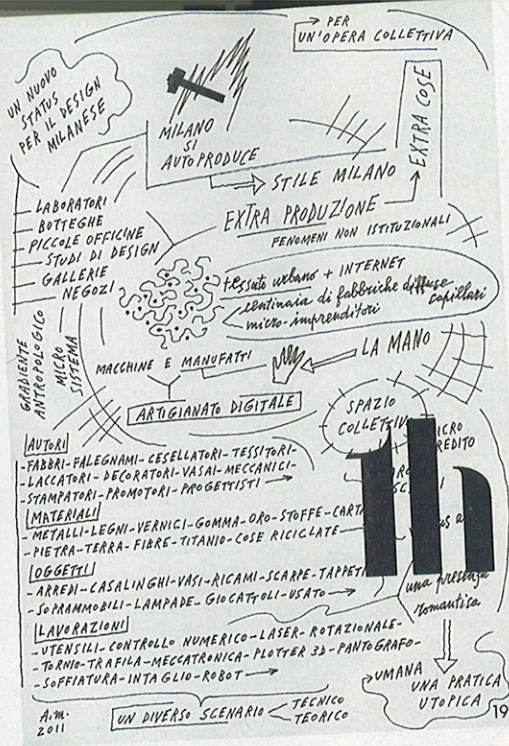 PER
UN'OPERA COLLETTIVA
UN NUOVO
STATUS
PER IL DESIGN
MILANESE
MILANO
SI
AUTOPRODUCE
EXTRA COSE
STILE MILANO
EXTRA PRODUZIONE
FENOMENI NON ISTITUZIONALI
- LABORATORI
- BOTTEGHE
- PICCOLE OFFICINE
- STUDI DI DESIGN
- GALLERIE
- NEGOZI
tessuto urbano + INTERNET
centinaia di fabbriche diffuse
capillari
micro-imprenditori
GRADIENTE
ANTROPOLOGICO
MICRO
SISTEMA
MACCHINE E MANUFATTI
LA MANO
ARTIGIANATO DIGITALE
SPAZIO
COLLETTIVO
AUTORI
- FABBRI - FALEGNAMI - CESELLATORI - TESSITORI -
- LACCATORI - DECORATORI - VASAI - MECCANICI -
- STAMPATORI - PROMOTORI - PROGETTISTI
MATERIALI
- METALLI - LEGNI - VERNICI - GOMMA - ORO - STOFFE - CARTA
- PIETRA - TERRA - FIBRE - TITANIO - COSE RICICLATE
OGGETTI
- ARREDI - CASALINGHI - VASI - RICAMI - SCARPE - TAPPETI
- SOPRAMMOBILI - LAMPADE - GIOCATTOLI - USATO
LAVORAZIONI
- UTENSILI - CONTROLLO NUMERICO - LASER - ROTAZIONALE -
- TORNIO - TRAFILA - MECCATRONICA - PLOTTER 3D - PANTOGRAFO -
- SOFFIATURA - INTAGLIO - ROBOT
1h
una presenza
romantica
UMANA
UNA PRATICA
UTOPICA
A.M.
2011
UN DIVERSO SCENARIO
TECNICO
TEORICO
19